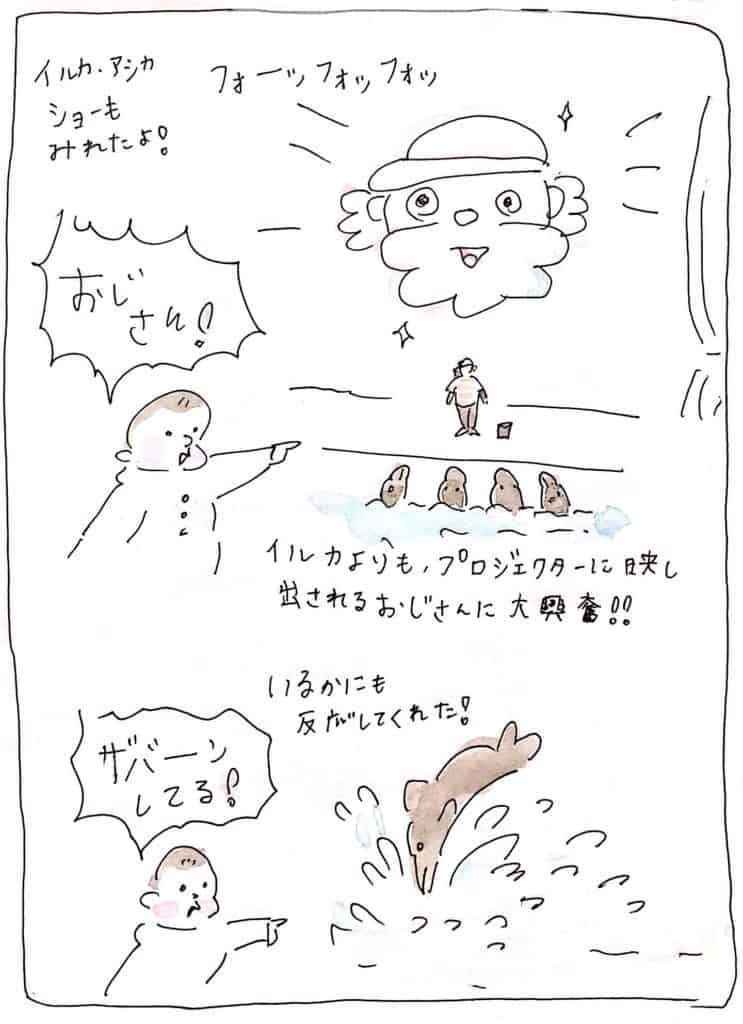 イルカ・アシカ
ショーも
みれたよ!
フォーッフォッフォッ
おじ
さん!
イルカよりも、プロジェクターに映し
出されるおじさんに大興奮!!
いるかにも
反応してくれた!
ザバーン
してる!